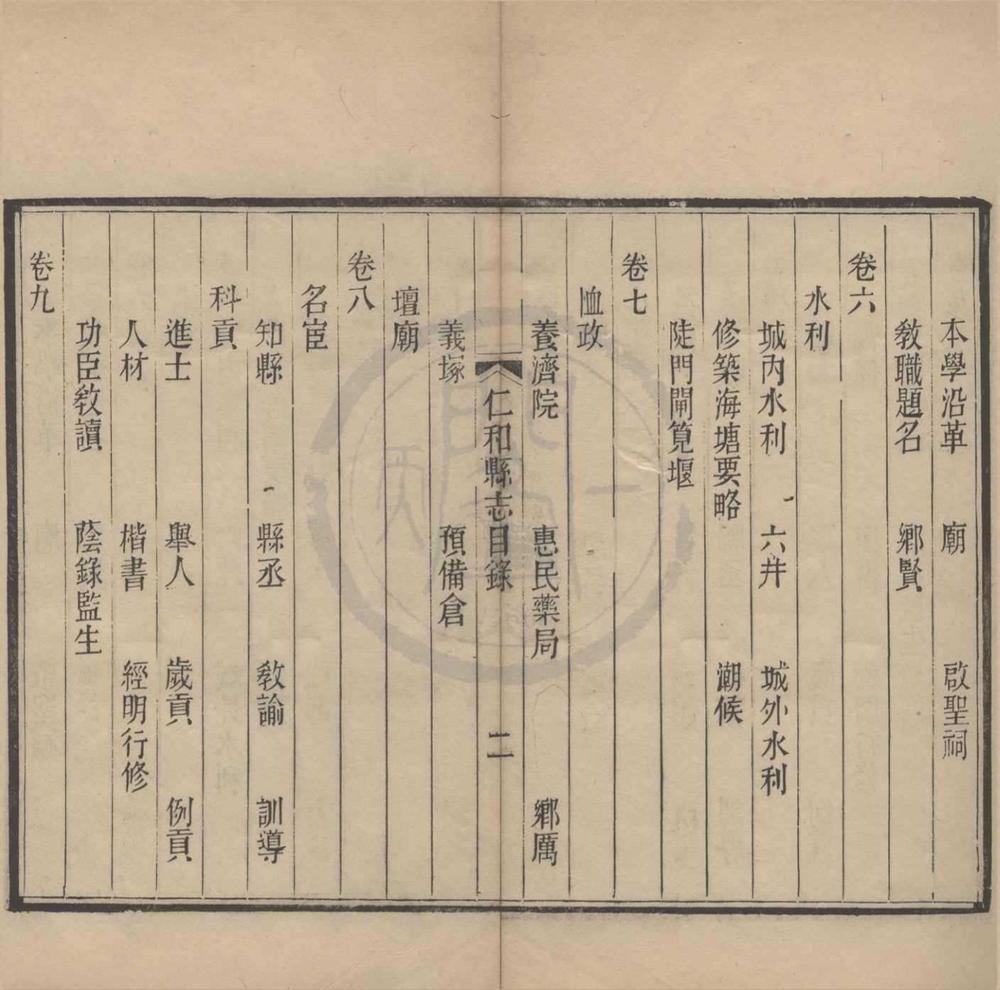 本學沿革　廟　啟聖祠
教職題名　鄉賢
卷六
水利
城內水利　六井　城外水利
修築海塘要略　潮候
陡門閘筧堰
卷七
恤政
養濟院　惠民藥局　鄉厲
義塚　預備倉
仁和縣志目錄　二
壇廟
卷八
名宦
知縣　縣丞　教諭　訓導
科貢
進士　舉人　歲貢　例貢
人材　楷書　經明行修
功臣教讀　蔭錄監生
卷九